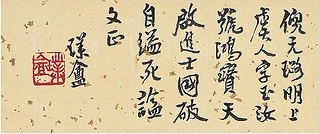 倪元璐明上
虞人字玉汝
號鴻寶天
啟進士國破
自縊死謚
文正
璞盦